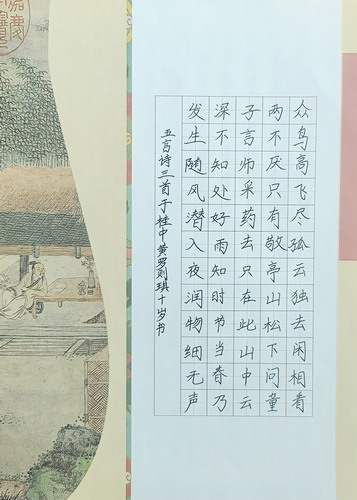 众鸟高飞尽孤云独去闲相看
两不厌只有敬亭山松下问童
子言师采药去只在此山中云
深不知处好雨知时节当春乃
发生随风潜入夜润物细无声
五言诗三首于桂中黄罗则琪十岁书